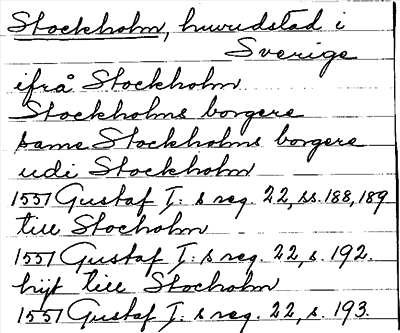 Stockholm, huvudstad i
Sverige
ifrå Stockholm
Stockholms borgere
same Stockholms borgere
udi Stockholm
1557 Gustaf I: s reg. 22, ss. 188, 189
till Stocholm
1557 Gustaf I: s reg. 22, s. 192.
hijt till Stocholm
1557 Gustaf I: s reg. 22, s. 193.